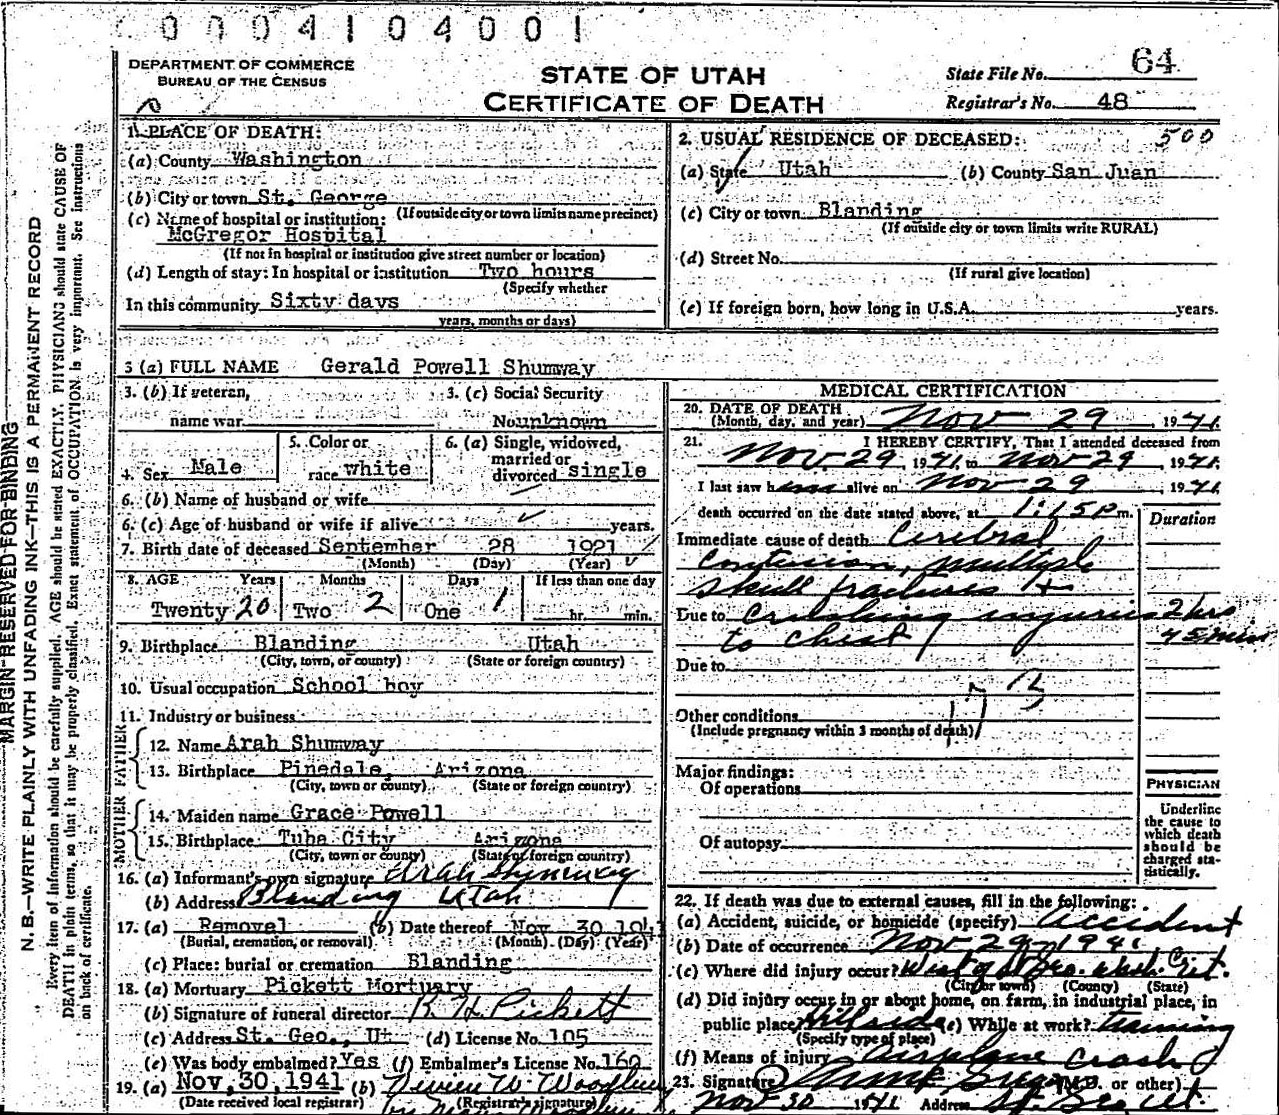 0004104001
DEPARTMENT OF COMMERCE
BUREAU OF THE CENSUS
STATE OF UTAH
CERTIFICATE OF DEATH
State File No. 64
Registrar's No. 48
1. PLACE OF DEATH:
(a) County Washington
(b) City or town St. George
(If outside city or town limits name precinct)
(c) Name of hospital or institution:
McGregor Hospital
(If not in hospital or institution give street number or location)
(d) Length of stay: In hospital or institution Two hours
(Specify whether
In this community Sixty days
years, months or days)
2. USUAL RESIDENCE OF DECEASED: 500
(a) State Utah (b) County San Juan
(c) City or town Blanding
(If outside city or town limits write RURAL)
(d) Street No.
(If rural give location)
(e) If foreign born, how long in U.S.A. years.
3 (a) FULL NAME Gerald Powell Shumway
3. (b) If veteran,
name war
3. (c) Social Security
No unknown
4. Sex Male
5. Color or
race white
6. (a) Single, widowed,
married or
divorced single
6. (b) Name of husband or wife
6. (c) Age of husband or wife if alive years.
7. Birth date of deceased September 28 1921
(Month) (Day) (Year)
8. AGE Years Months Days If less than one day
Twenty 20 Two 2 One 1 hr. min.
9. Birthplace Blanding Utah
(City, town, or county) (State or foreign country)
10. Usual occupation School boy
11. Industry or business
FATHER
12. Name Arah Shumway
13. Birthplace Pinedale, Arizona
(City, town or county) (State or foreign country)
MOTHER
14. Maiden name Grace Powell
15. Birthplace Tuba City Arizona
(City, town or county) (State or foreign country)
16. (a) Informant's own signature Arah Shumway
(b) Address Blanding Utah
17. (a) Removal (b) Date thereof Nov 30 1941
(Burial, cremation, or removal) (Month) (Day) (Year)
(c) Place: burial or cremation Blanding
18. (a) Mortuary Pickett Mortuary
(b) Signature of funeral director R H Pickett
(c) Address St. Geo., Ut (d) License No. 105
(e) Was body embalmed? Yes (f) Embalmer's License No. 160
19. (a) Nov, 30, 1941 (b) W. Woodbury
(Date received local registrar) (Registrar's signature)
MEDICAL CERTIFICATION
20. DATE OF DEATH
(Month, day, and year) Nov 29, 1941.
21. I HEREBY CERTIFY, That I attended deceased from
Nov. 29 1941 to Nov 29, 1941.
I last saw him alive on Nov 29, 1941
death occurred on the date stated above, at 1:15 P m.
Duration
Immediate cause of death Cerebral
Contusion, multiple
skull fractures +
Due to crushing injuries 2 hrs
to chest 45 min
Due to
173
Other conditions
(Include pregnancy within 3 months of death)
Major findings:
Of operations
Of autopsy
PHYSICIAN
Underline
the cause to
which death
should be
charged sta-
tistically.
22. If death was due to external causes, fill in the following:
(a) Accident, suicide, or homicide (specify) Accident
(b) Date of occurrence Nov 29, 1941
(c) Where did injury occur? West of St Geo. Wash. Ut.
(City or town) (County) (State)
(d) Did injury occur in or about home, on farm, in industrial place, in
public place? Hillside (e) While at work? training
(Specify type of place)
(f) Means of injury Airplane crash
23. Signature (M.D. or other)
Nov 30 1941 Address St. Geo Ut.
MARGIN RESERVED FOR BINDING
N. B.—WRITE PLAINLY WITH UNFADING INK—THIS IS A PERMANENT RECORD
Every item of information should be carefully supplied. AGE should be stated EXACTLY. PHYSICIANS should state CAUSE OF
DEATH in plain terms, so that it may be properly classified. Exact statement of OCCUPATION is very important. See instructions
on back of certificate.